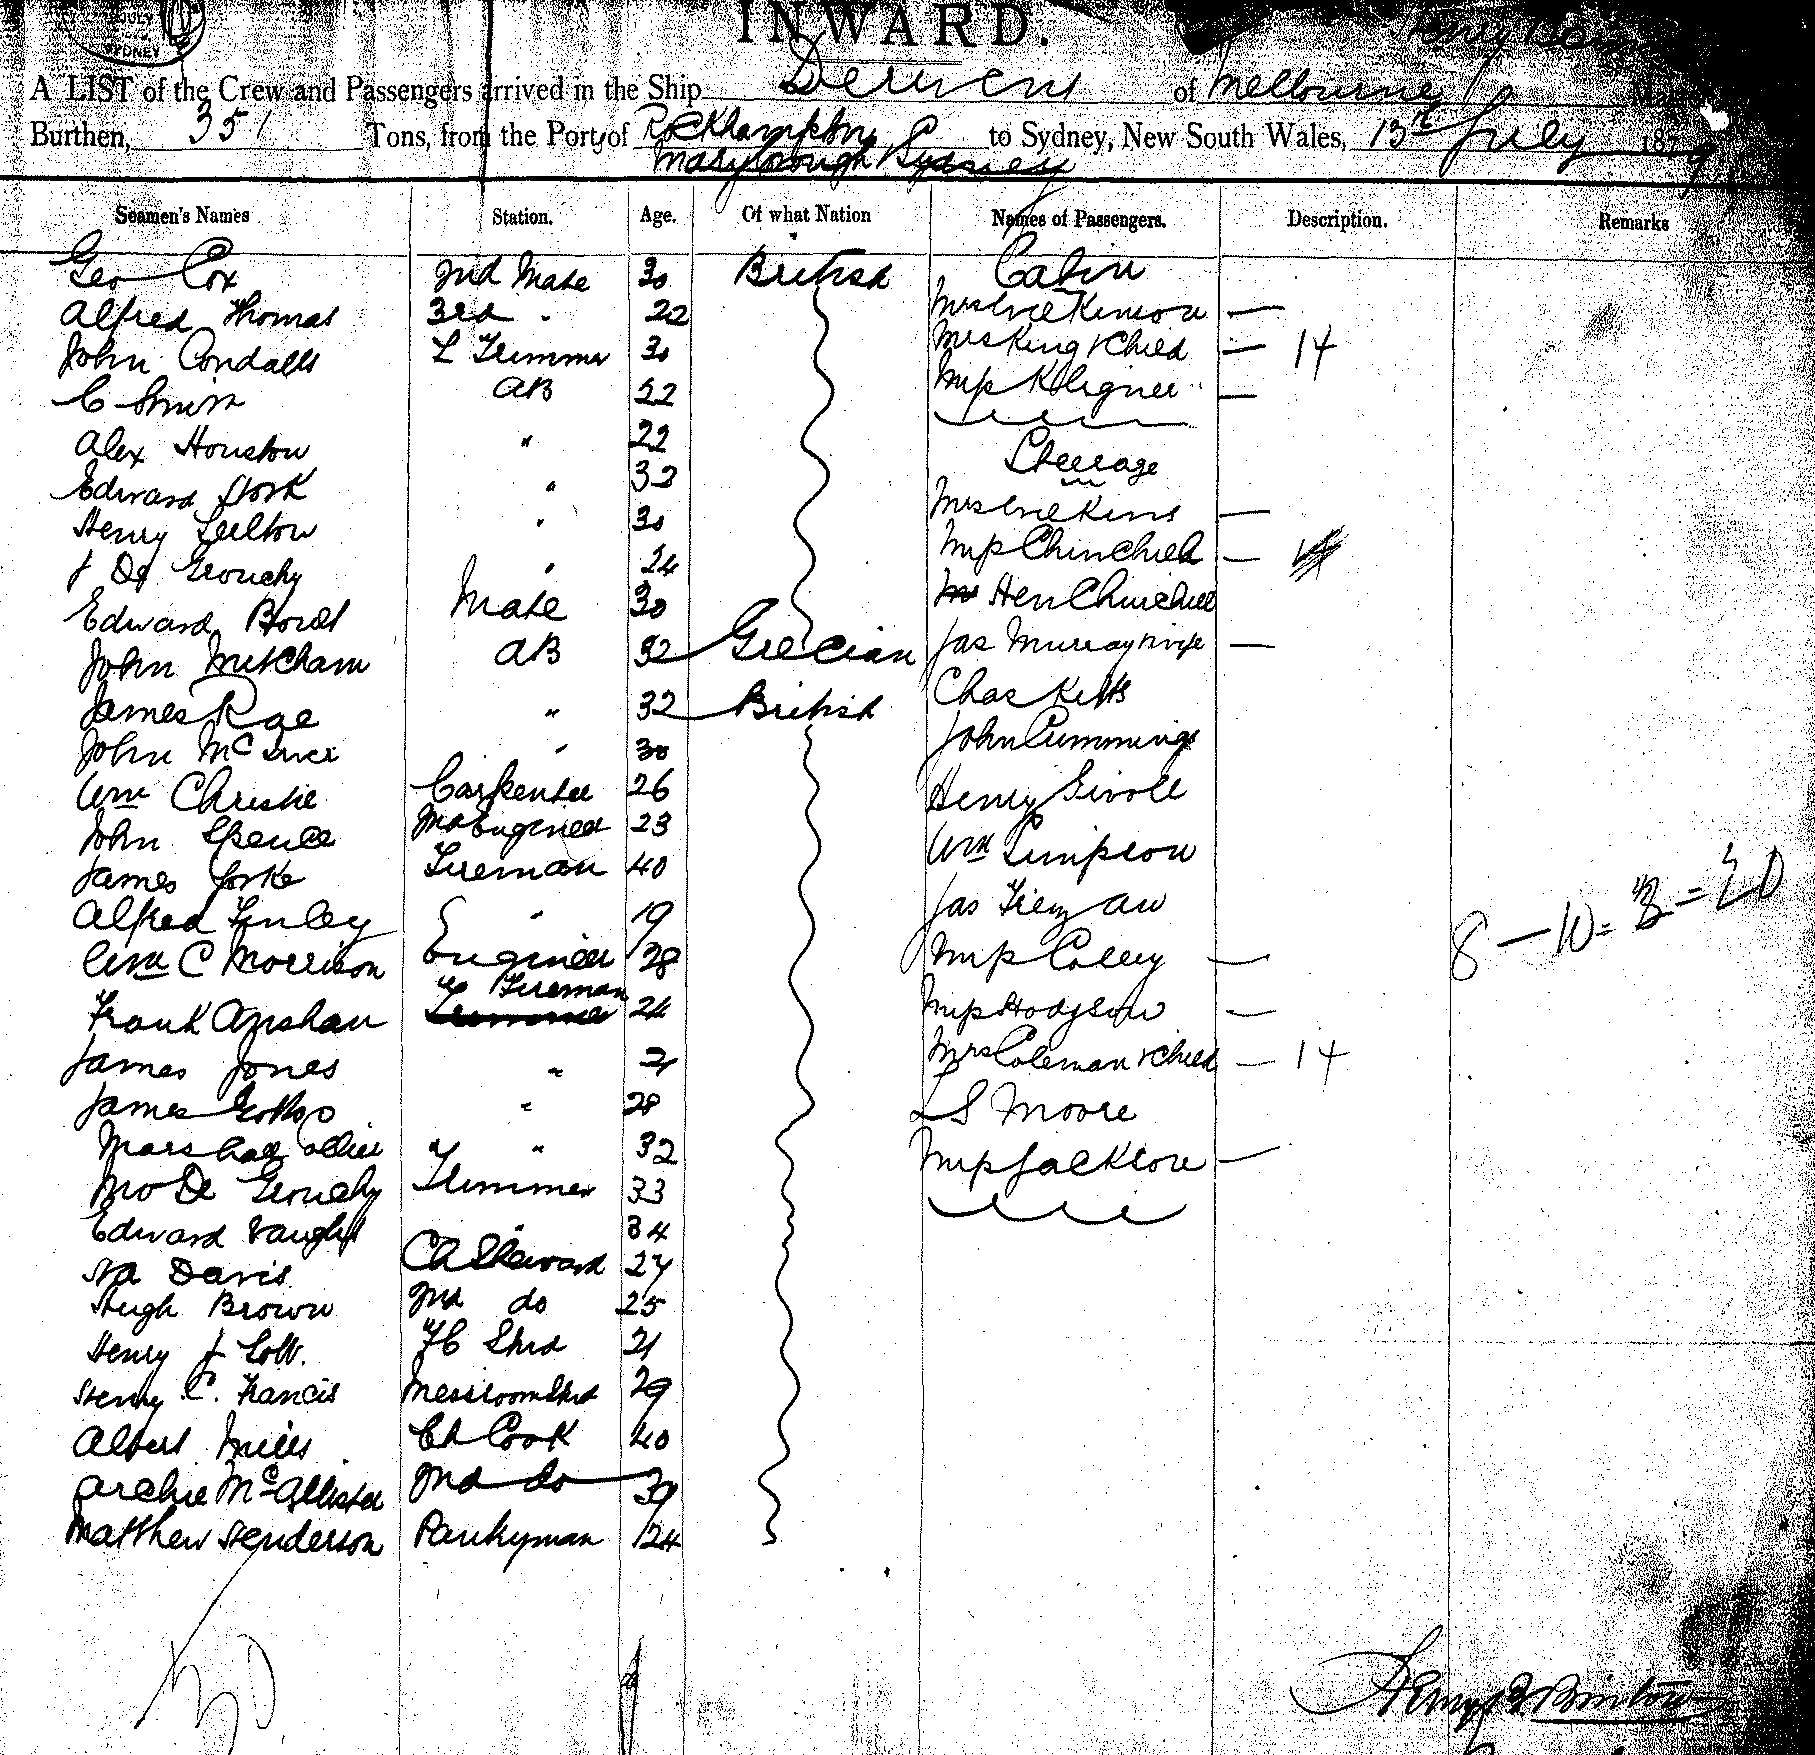 JULY
SYDNEY
INWARD.
A LIST of the Crew and Passengers arrived in the Ship Derwent of Melbourne
Burthen, 351 Tons, from the Port of Rockhampton, to Sydney, New South Wales, 13th July 1879
Maryborough & Sydney
Seamen's Names Station. Age. Of what Nation Names of Passengers. Description. Remarks
Geo Cox 2nd Mate 30 British Cabin
Alfred Thomas 3rd " 22 Mrs Wilkinson —
John Condalls L Trimmer 30 Mrs King & Child — 1+
C Smith AB 22 Miss —
Alex Houston " 22 Steerage
Edward York " 32
Henry " 30 Mrs Wilkins —
J De Grouchy " 24 Miss Churchill —
Edward Mate 30 Hen Churchill
John Metcham AB 32 Grecian Jas Murray & wife —
James Rae " 32 British Chas Kelts
John Mc " 30 John Cummings
Wm Christie Carpenter 26 Henry
John Spence 2nd Engineer 23 Wm Simpson
James Yorke Fireman 40 Jas
Alfred Finley " 19
Wm C Morrison Engineer 28 Miss Colley — 8 — 10 = = 20
Frank Fireman 24 Miss Hodgson —
James Jones " 21 Mrs Coleman & Child — 1+
James " 28 L S Moore
Marshall " " 32 Miss Jackson —
De Grouchy Trimmer 33
Edward Vaughn " 34
Davis Ch Steward 27
Hugh Brown 2nd do 25
Henry J 21
Henry C. Francis Messroom Std 29
Albert Mills Ch Cook 40
Archie McAllister 2nd do 39
Matthew Henderson Pantryman 24
30